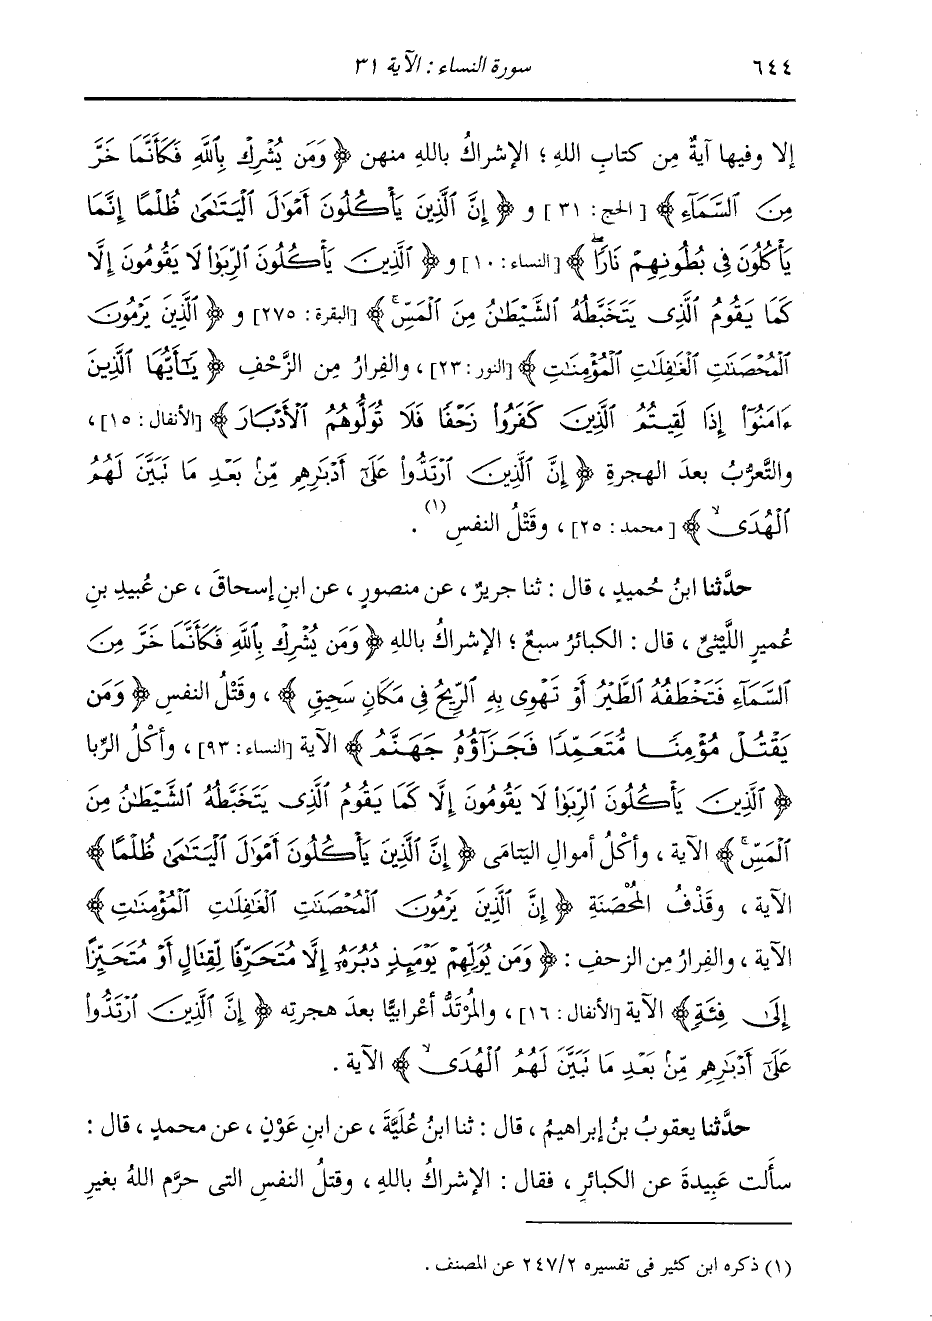 ٦٤٤ سورة النساء : الآية ٣١
إلا وفيها آيةٌ مِن كتابِ اللهِ ؛ الإشراكُ باللهِ منهن ﴿ وَمَن يُشْرِكْ بِاللَّهِ فَكَأَنَّمَا خَرَّ
مِنَ السَّمَآءِ ﴾ [ الحج : ٣١ ] و ﴿ إِنَّ الَّذِينَ يَأْكُلُونَ أَمْوَالَ الْيَتَامَىٰ ظُلْمًا إِنَّمَا
يَأْكُلُونَ فِي بُطُونِهِمْ نَارًا ۖ ﴾ [النساء : ١٠] و ﴿ الَّذِينَ يَأْكُلُونَ الرِّبَوٰا لَا يَقُومُونَ إِلَّا
كَمَا يَقُومُ الَّذِي يَتَخَبَّطُهُ الشَّيْطَانُ مِنَ الْمَسِّ ۚ ﴾ [البقرة : ٢٧٥] و ﴿ الَّذِينَ يَرْمُونَ
الْمُحْصَنَاتِ الْغَافِلَاتِ الْمُؤْمِنَاتِ ﴾ [النور : ٢٣] ، والفِرارُ مِن الزَّحْفِ ﴿ يَٰٓأَيُّهَا الَّذِينَ
ءَامَنُوٓا إِذَا لَقِيتُمُ الَّذِينَ كَفَرُوا زَحْفًا فَلَا تُوَلُّوهُمُ الْأَدْبَارَ ﴾ [الأنفال : ١٥] ،
والتَّعرُّبُ بعدَ الهجرةِ ﴿ إِنَّ الَّذِينَ ارْتَدُّوا عَلَىٰٓ أَدْبَارِهِم مِّنۢ بَعْدِ مَا تَبَيَّنَ لَهُمُ
الْهُدَى ۙ ﴾ [ محمد : ٢٥] ، وقَتْلُ النفسِ (١) .
حدَّثنا ابنُ حُميدٍ ، قال : ثنا جريرٌ ، عن منصورٍ ، عن ابنِ إسحاقَ ، عن عُبيدِ بنِ
عُميرٍ اللَّيْثيِّ ، قال : الكبائرُ سبعٌ ؛ الإشراكُ باللهِ ﴿ وَمَن يُشْرِكْ بِاللَّهِ فَكَأَنَّمَا خَرَّ مِنَ
السَّمَآءِ فَتَخْطَفُهُ الطَّيْرُ أَوْ تَهْوِي بِهِ الرِّيحُ فِي مَكَانٍ سَحِيقٍ ﴾ ، وقَتْلُ النفسِ ﴿ وَمَن
يَقْتُلْ مُؤْمِنًا مُّتَعَمِّدًا فَجَزَآؤُهُ جَهَنَّمُ ﴾ الآية [النساء : ٩٣] ، وأكْلُ الرِّبا
﴿ الَّذِينَ يَأْكُلُونَ الرِّبَوٰا لَا يَقُومُونَ إِلَّا كَمَا يَقُومُ الَّذِي يَتَخَبَّطُهُ الشَّيْطَانُ مِنَ
الْمَسِّ ۚ ﴾ الآية ، وأكْلُ أموالِ اليتامَى ﴿ إِنَّ الَّذِينَ يَأْكُلُونَ أَمْوَالَ الْيَتَامَىٰ ظُلْمًا ﴾
الآية ، وقَذْفُ المُحْصَنَةِ ﴿ إِنَّ الَّذِينَ يَرْمُونَ الْمُحْصَنَاتِ الْغَافِلَاتِ الْمُؤْمِنَاتِ ﴾
الآية ، والفِرارُ مِن الزحفِ : ﴿ وَمَن يُوَلِّهِمْ يَوْمَئِذٍ دُبُرَهُ إِلَّا مُتَحَرِّفًا لِّقِتَالٍ أَوْ مُتَحَيِّزًا
إِلَىٰ فِئَةٍ ﴾ الآية [الأنفال : ١٦] ، والمُرْتَدُّ أعْرابيًّا بعدَ هجرتِه ﴿ إِنَّ الَّذِينَ ارْتَدُّوا
عَلَىٰٓ أَدْبَارِهِم مِّنۢ بَعْدِ مَا تَبَيَّنَ لَهُمُ الْهُدَى ۙ ﴾ الآية .
حدَّثنا يعقوبُ بنُ إبراهيمَ ، قال : ثنا ابنُ عُلَيَّةَ ، عن ابنِ عَوْنٍ ، عن محمدٍ ، قال :
سأَلت عَبِيدةَ عن الكبائرِ ، فقال : الإشراكُ باللهِ ، وقتلُ النفسِ التى حرَّم اللهُ بغيرِ
(١) ذكره ابن كثير فى تفسيره ٢٤٧/٢ عن المصنف .